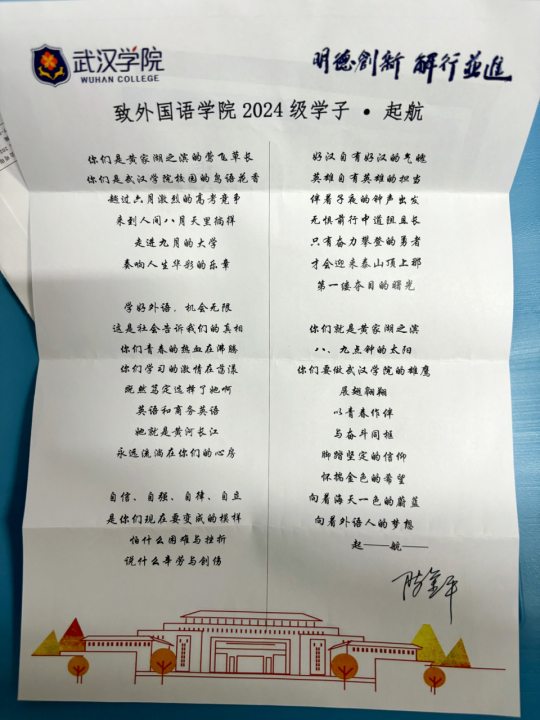 武汉学院
WUHAN COLLEGE
明德创新 解行並進
致外国语学院 2024 级学子 • 起航
你们是黄家湖之滨的莺飞草长
你们是武汉学院校园的鸟语花香
越过六月激烈的高考竞争
来到人间八月天里徜徉
走进九月的大学
奏响人生华彩的乐章
学好外语，机会无限
这是社会告诉我们的真相
你们青春的热血在沸腾
你们学习的激情在荡漾
既然笃定选择了她啊
英语和商务英语
她就是黄河长江
永远流淌在你们的心房
自信、自强、自律、自立
是你们现在要变成的模样
怕什么困难与挫折
说什么辛劳与创伤
好汉自有好汉的气魄
英雄自有英雄的担当
伴着子夜的钟声出发
无惧前行中道阻且长
只有奋力攀登的勇者
才会迎来泰山顶上那
第一缕夺目的曙光
你们就是黄家湖之滨
八、九点钟的太阳
你们要做武汉学院的雄鹰
展翅翱翔
以青春作伴
与奋斗同框
脚踏坚定的信仰
怀揣金色的希望
向着海天一色的蔚蓝
向着外语人的梦想
起——航——